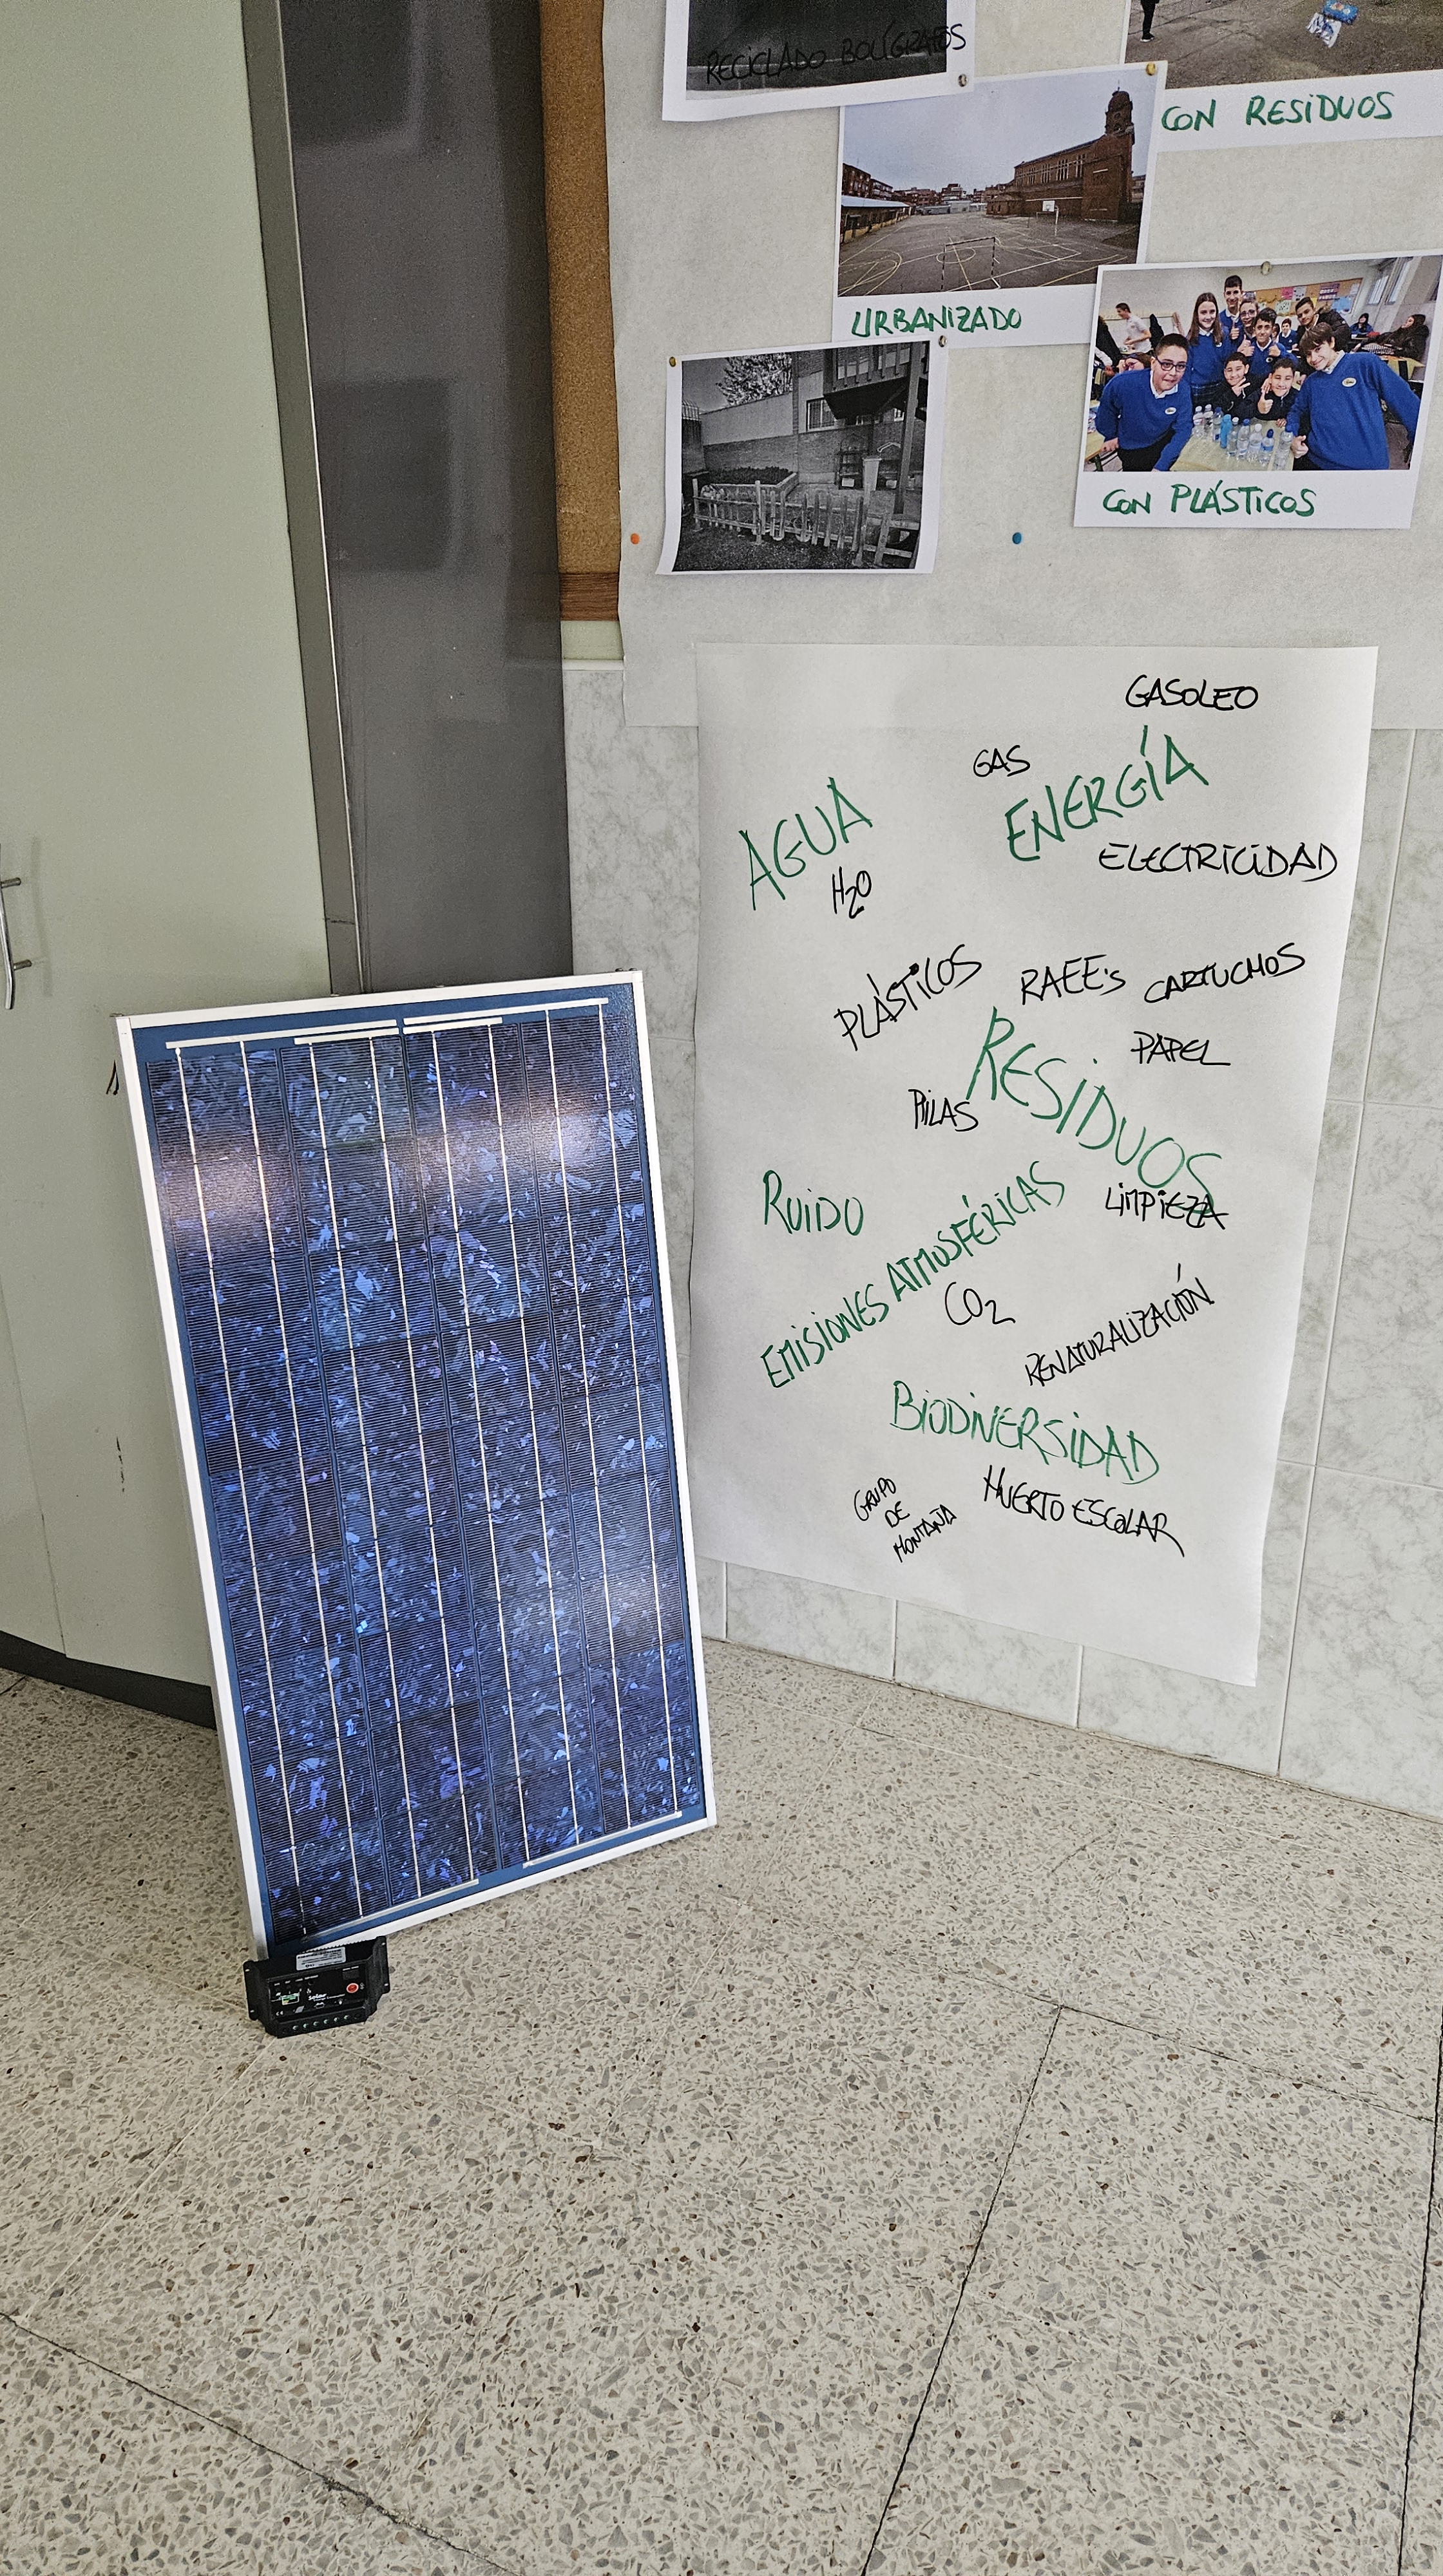 RECICLADO BOLÍGRAFOS
CON RESIDUOS
URBANIZADO
CON PLÁSTICOS
GASOLEO
GAS
ENERGÍA
AGUA
ELECTRICIDAD
H2O
PLÁSTICOS
RAEE's
CARTUCHOS
PAPEL
RESIDUOS
PILAS
RUIDO
LIMPIEZA
EMISIONES ATMOSFÉRICAS
CO2
RENATURALIZACIÓN
BIODIVERSIDAD
GRUPO
DE
MONTAÑA
HUERTO ESCOLAR